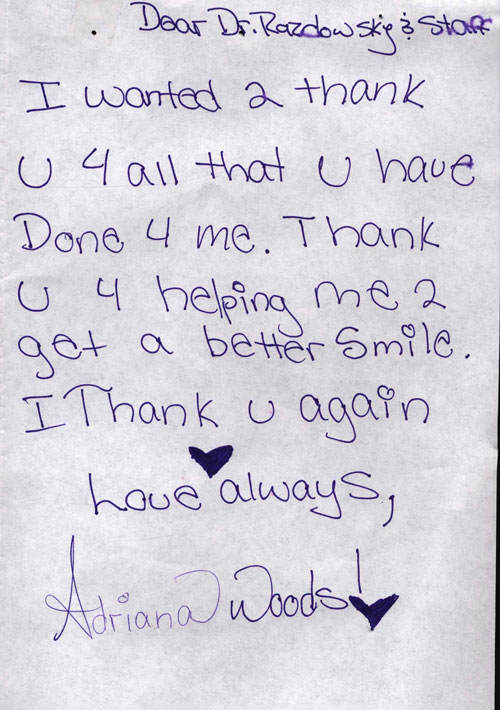 Dear Dr. Razdowsky & Staff
I wanted 2 thank
U 4 all that U have
Done 4 me. Thank
U 4 helping me 2
get a better Smile.
I Thank U again
Love always,
Adriana Woods!